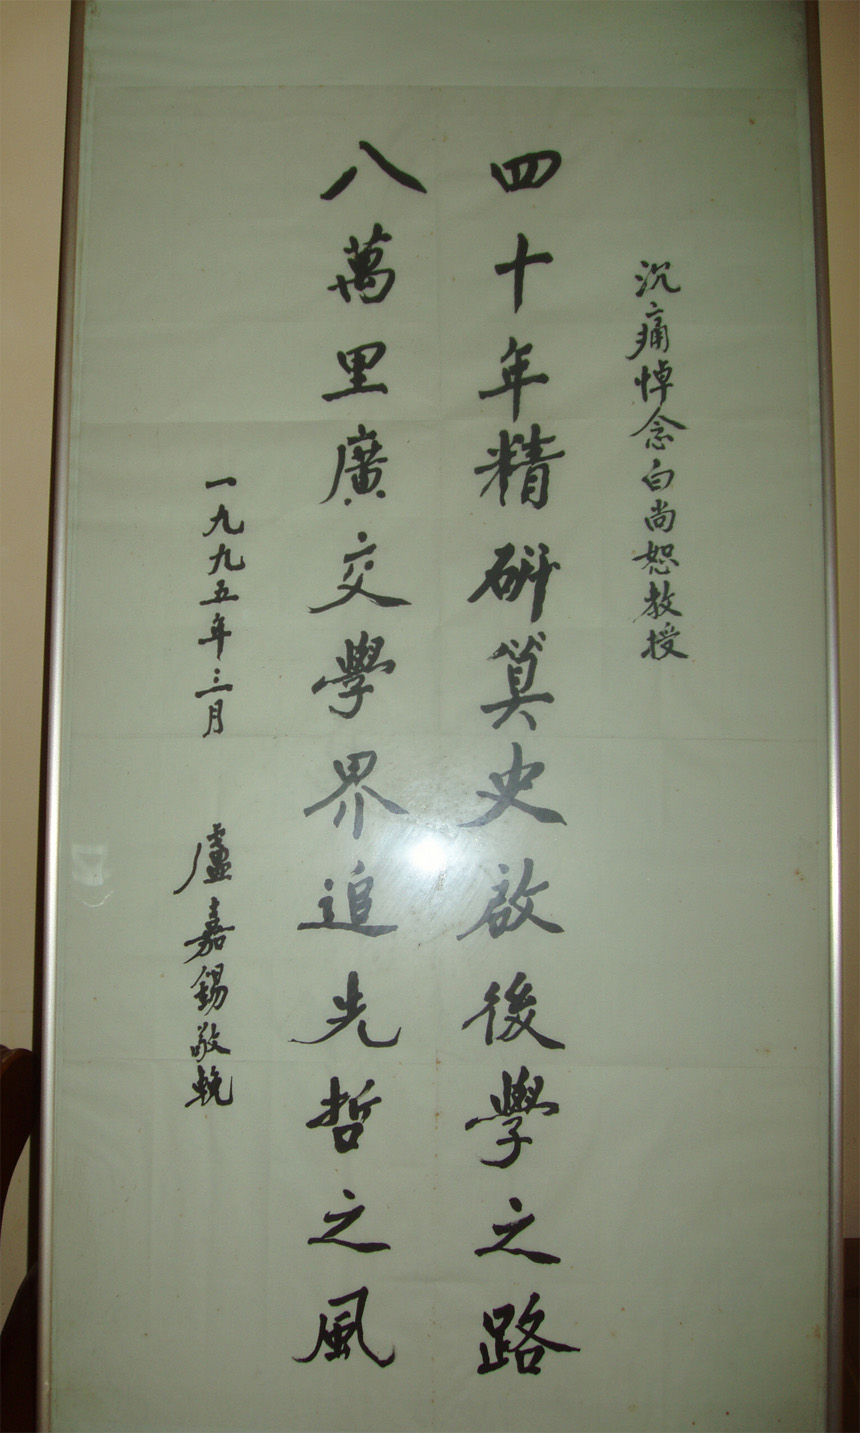 沉痛悼念白尚恕教授
四十年精研算史啟後學之路
八萬里廣交學界追先哲之風
一九九五年三月 盧嘉錫敬輓